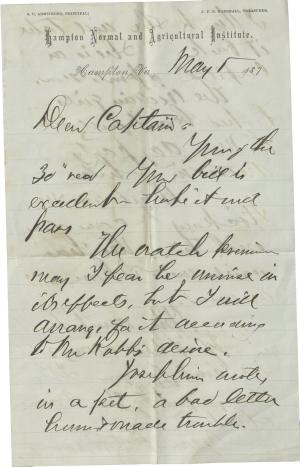 S. C. ARMSTRONG, PRINCIPAL. J. F. B. MARSHALL, TREASURER.
Hampton Normal and Agricultural Institute.
Hampton, Va., May 5 187
Dear Captain:
Yrs of the
3d rec'd Your bill is
excellent hope it will
pass
The watch premium
may I fear be unwise in
its effects, but I will
arrange for it according
to Mr Robb's desire.
Josephine wrote,
in a pet, a bad letter
trouble.